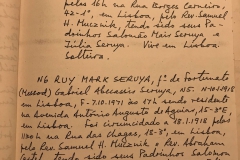 pelas 16h na Rua Borges Carneiro,
42-1º, em Lisboa, pelo Rev. Samuel
H. Mucznik, tendo sido seus Pa-
drinhos Salomão Mair Seruya e
Júlia Seruya. Vive em Lisboa.
Solteiro.
N6 RUY MARK SERUYA, fº de Fortunato
(Messod) Gabriel Abecassis Seruya, N5. N-10.1.1918
em Lisboa, F-7.10.1971 às 17h sendo residente
na Avenida António Augusto de Aguiar, 15-3ºE,
em Lisboa. Foi circuncidado a 18.1.1918 pelas
h na Rua das Chagas, 15-3º, em Lisboa,
pelo Rev. Samuel H. Mucznik e Rev. Abraham
tendo sido seus Padrinhos Salomão